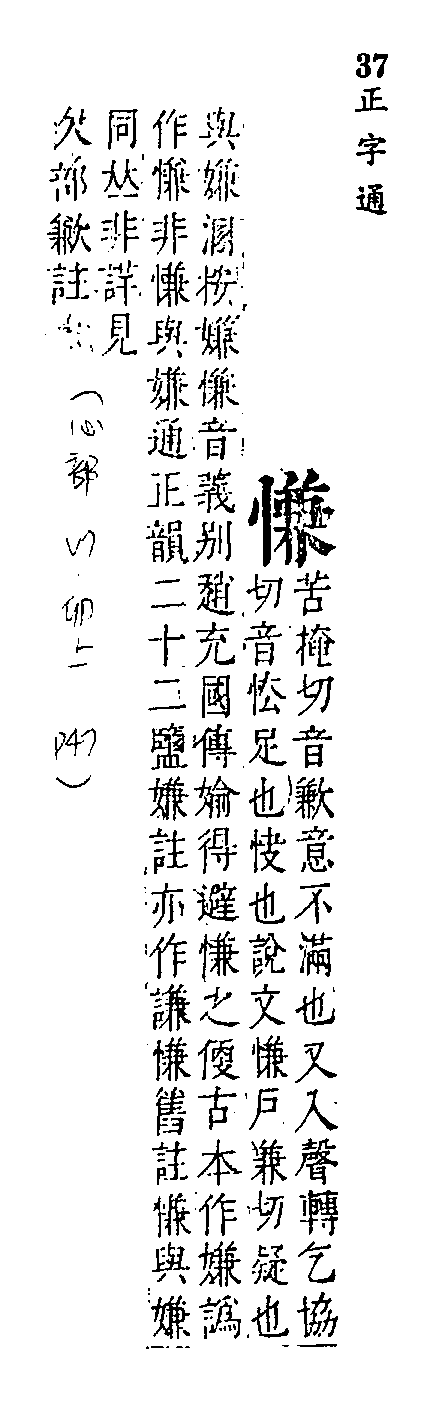 37 正字通
慊
苦掩切音歉意不滿也又入聲轉乞協
切音足也快也說文慊戶兼切疑也
與嫌溷按嫌慊音義别趙充國傳媮得避慊之便古本作嫌譌
作慊非慊與嫌通正韻二十二鹽嫌註亦作謙慊舊註慊與嫌
同𠀤非詳見
欠部歉註
(心部 卯上 P47)